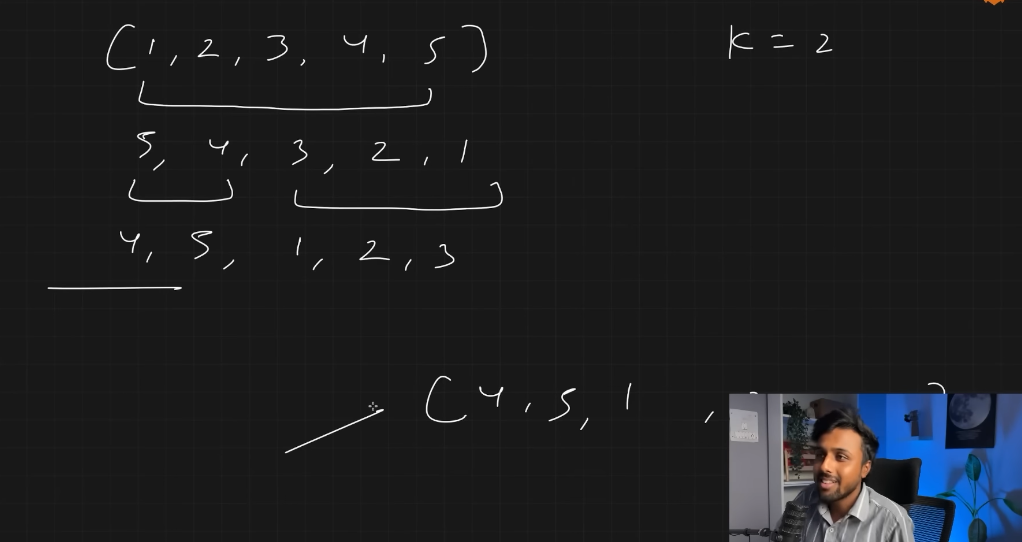 (1, 2, 3, 4, 5)
K = 2
5, 4, 3, 2, 1
4, 5, 1, 2, 3
(4, 5, 1 ,